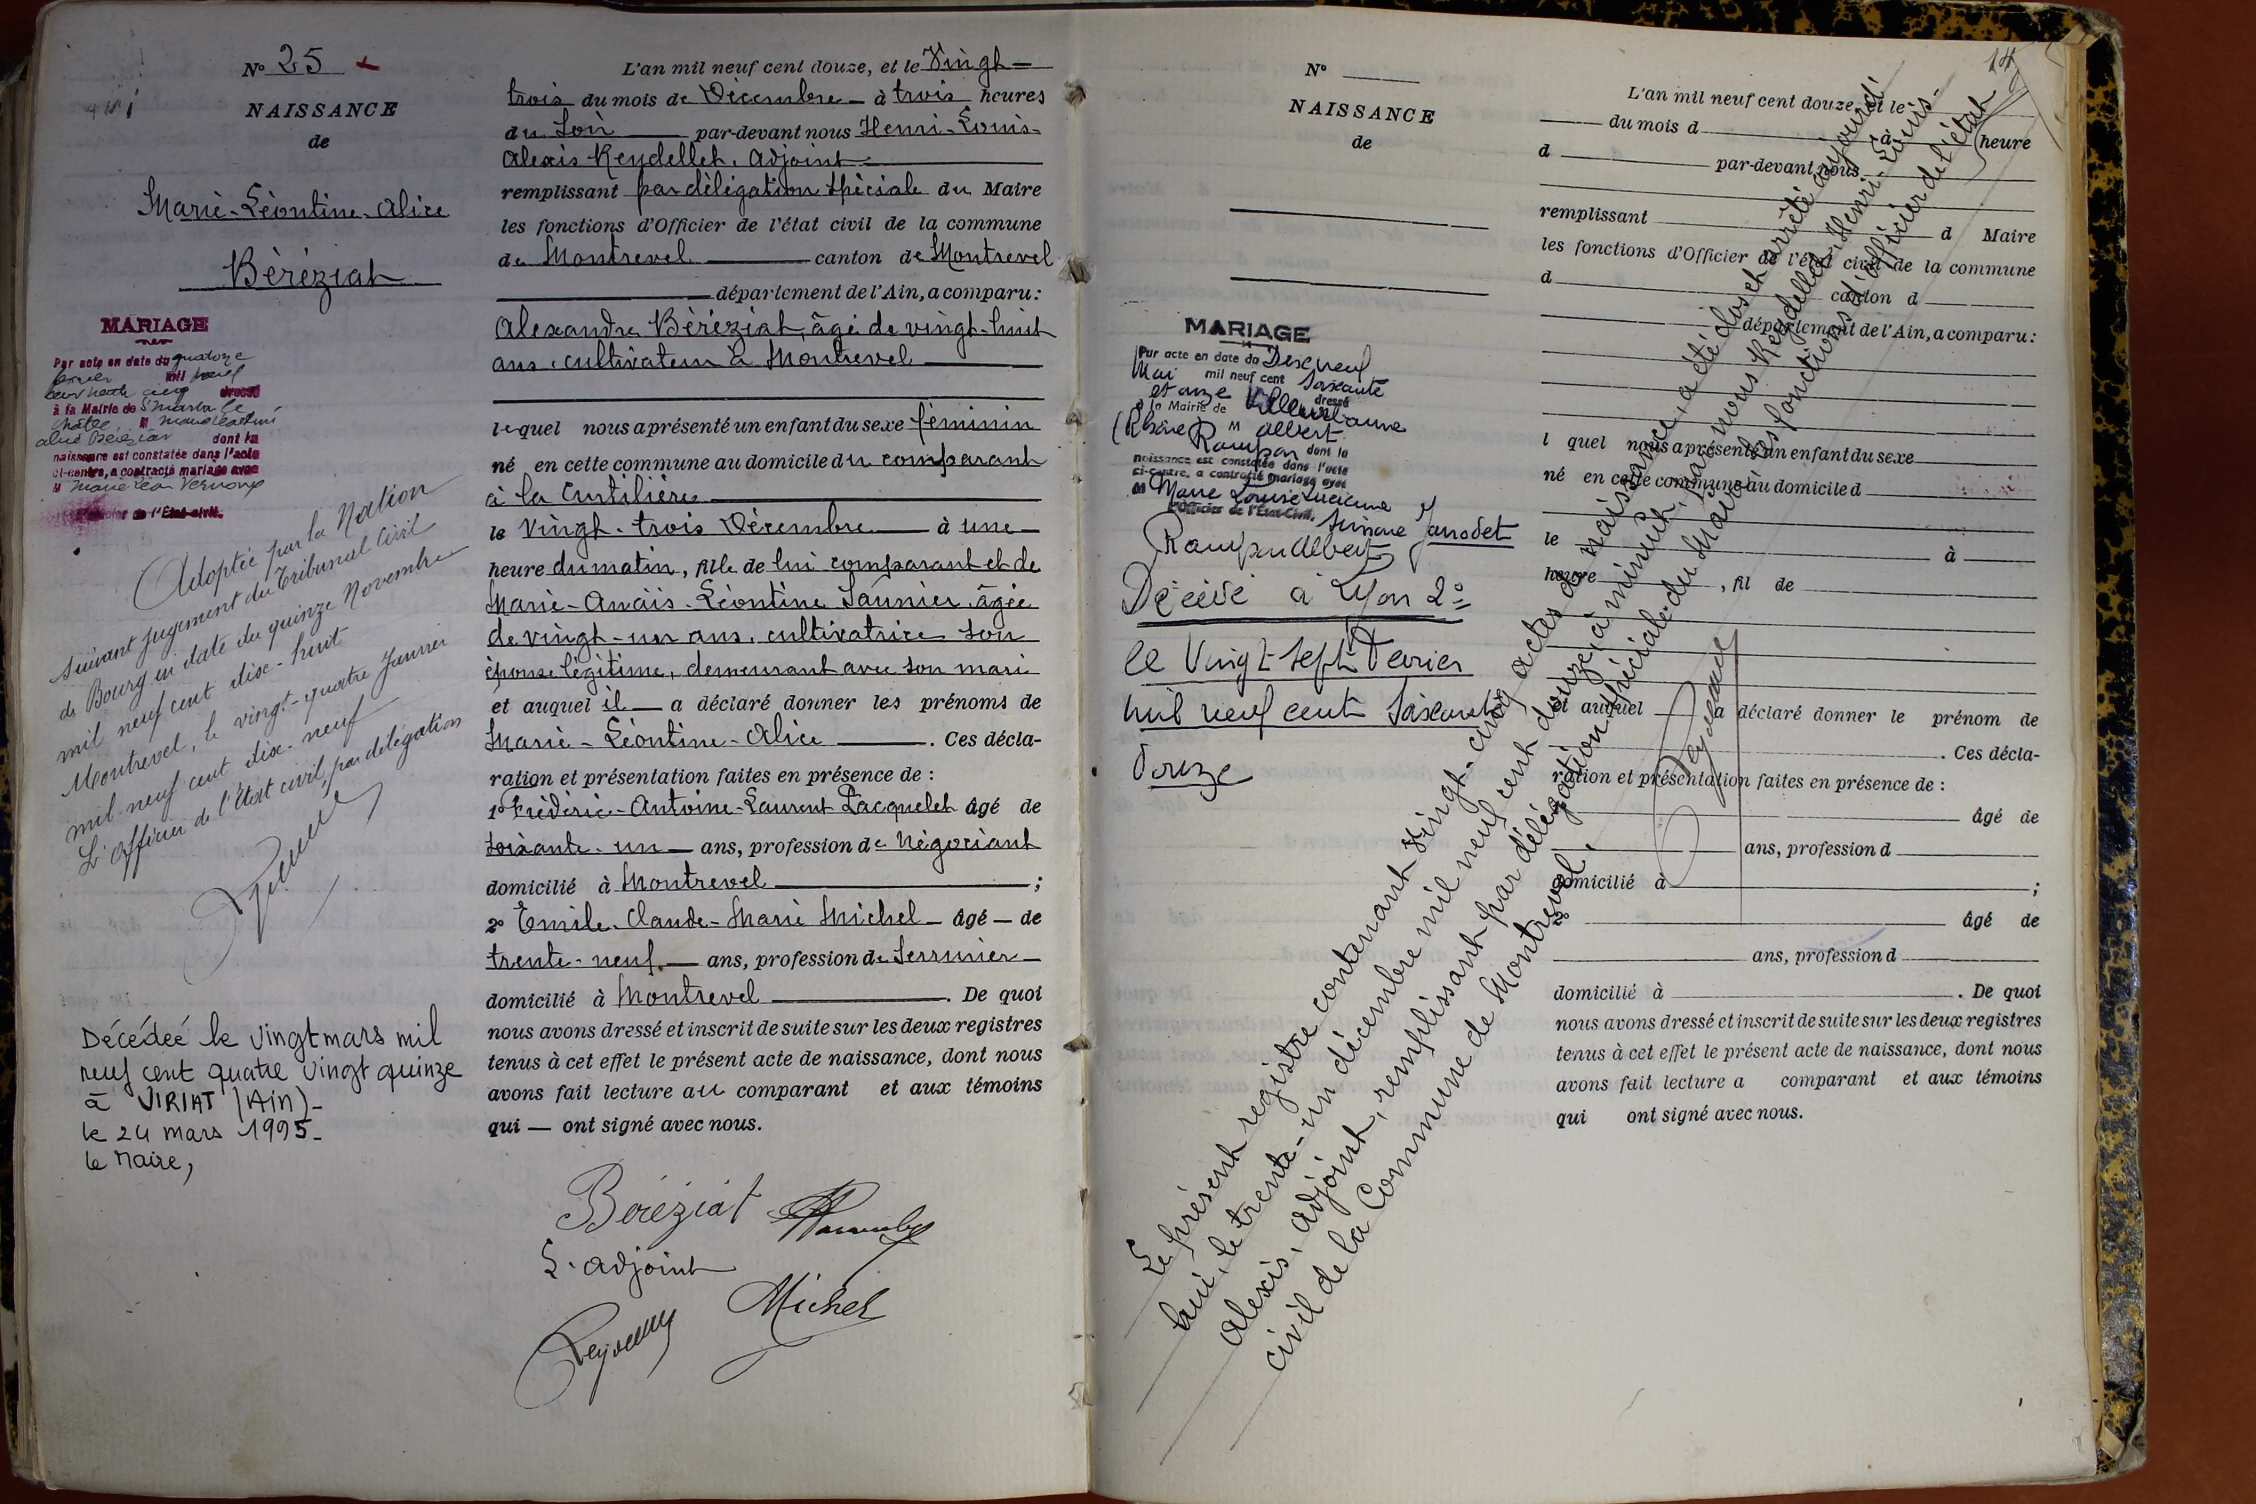 N° 25
NAISSANCE
de
Marie-Léontine-Alice
Béréziat
MARIAGE
Par acte en date du quatorze
février mil neuf
cent trente cinq dressé
à la Mairie de
M Marie Léontine
Alice Béréziat dont la
naissance est constatée dans l'acte
ci-contre, a contracté mariage avec
M Marie Léon
l'Officier de l'État-civil.
Adoptée par la Nation
suivant jugement du Tribunal Civil
de Bourg en date du quinze Novembre
mil neuf cent dix-huit
Montrevel, le vingt-quatre Janvier
mil neuf cent dix-neuf
L'officier de l'état civil, par délégation
Décédeé le vingt mars mil
neuf cent quatre vingt quinze
à VIRIAT (Ain)_
le 24 mars 1995_
le Maire,
L'an mil neuf cent douze, et le Vingt-
trois du mois de Décembre à trois heures
du soir par-devant nous Henri-Louis-
Alexis Reydellet, Adjoint
remplissant par délégation spéciale du Maire
les fonctions d'Officier de l'état civil de la commune
de Montrevel canton de Montrevel
département de l'Ain, a comparu:
Alexandre Béréziat, âgé de vingt-huit
ans, cultivateur à Montrevel
lequel nous a présenté un enfant du sexe féminin
né en cette commune au domicile du comparant
à la Curtilière
le vingt-trois Décembre à une
heure du matin, fille de lui comparant et de
Marie-Anaïs-Léontine Saunier, âgée
de vingt-un ans, cultivatrice son
épouse légitime, demeurant avec son mari
et auquel il a déclaré donner les prénoms de
Marie-Léontine-Alice. Ces décla-
ration et présentation faites en présence de :
1° Frédéric-Antoine-Laurent Pacquelet âgé de
soixante-un ans, profession de Négociant
domicilié à Montrevel ;
2° Emile-Claude-Marie Michel âgé de
trente-neuf ans, profession de Serrurier
domicilié à Montrevel. De quoi
nous avons dressé et inscrit de suite sur les deux registres
tenus à cet effet le présent acte de naissance, dont nous
avons fait lecture au comparant et aux témoins
qui — ont signé avec nous.
Béréziat
L'adjoint
Michel
14
N°
NAISSANCE
de
MARIAGE
Par acte en date du Dix neuf
Mai mil neuf cent soixante
et onze dressé
à la Mairie de Villeurbanne
(Rhône) M Albert
Rampon dont la
naissance est constatée dans l'acte
ci-contre, a contracté mariage avec
M Marie Louise Lucienne
Simone Janodet
l'Officier de l'État-Civil,
Rampon Albert
Décédé à Lyon 2°
le Vingt sept Fevrier
mil neuf cent soixante
douze
L'an mil neuf cent douze, et le
du mois d à heure
d par-devant nous
remplissant d Maire
les fonctions d'Officier de l'état civil de la commune
d canton d
département de l'Ain, a comparu:
l quel nous a présenté un enfant du sexe
né en cette commune au domicile d
le à
heure , fil de
et auquel a déclaré donner le prénom de
. Ces décla-
ration et présentation faites en présence de :
âgé de
ans, profession d
domicilié à ;
2° âgé de
ans, profession d
domicilié à . De quoi
nous avons dressé et inscrit de suite sur les deux registres
tenus à cet effet le présent acte de naissance, dont nous
avons fait lecture a comparant et aux témoins
qui ont signé avec nous.
Le présent registre contenant vingt-cinq actes de naissance, a été clos et arrêté aujourd'
hui, le trente-un décembre mil neuf cent douze, à minuit, par nous Reydellet Henri-Louis-
Alexis, adjoint, remplissant par délégation spéciale du Maire les fonctions d'officier de l'état
civil de la Commune de Montrevel.